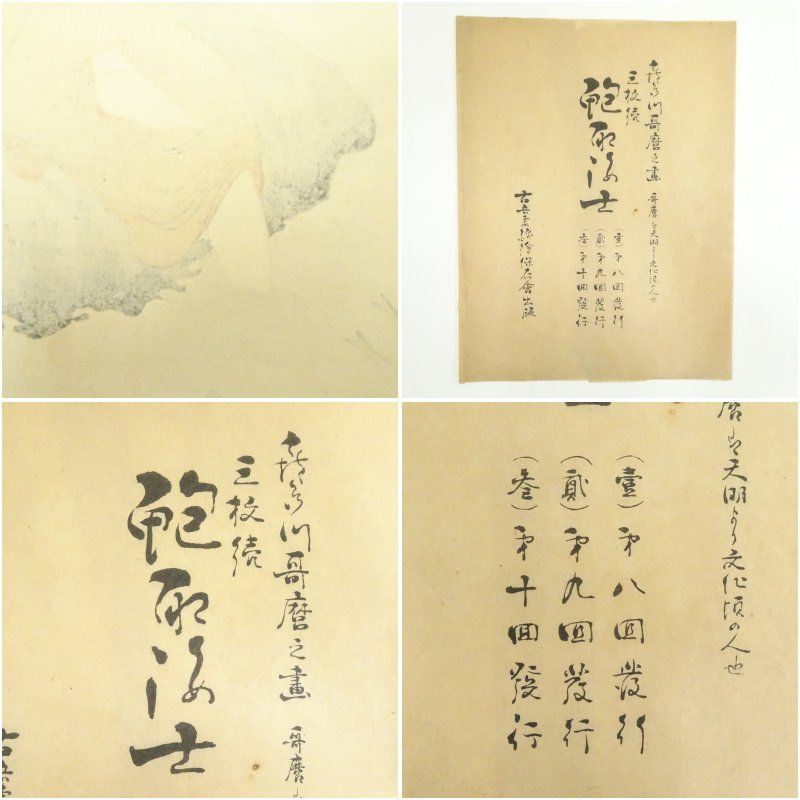 喜多川哥麿之畫 哥麿は天明より文化頃の人也
三枚續
鮑取海士
(壹)第八回發行
(貳)第九回發行
(叄)第十回發行
古吾妻錦繪保存會出版
喜多川哥麿之畫 哥麿
三枚續
鮑取海士
古吾
麿は天明より文化頃の人也
(壹)第八回發行
(貳)第九回發行
(叄)第十回發行